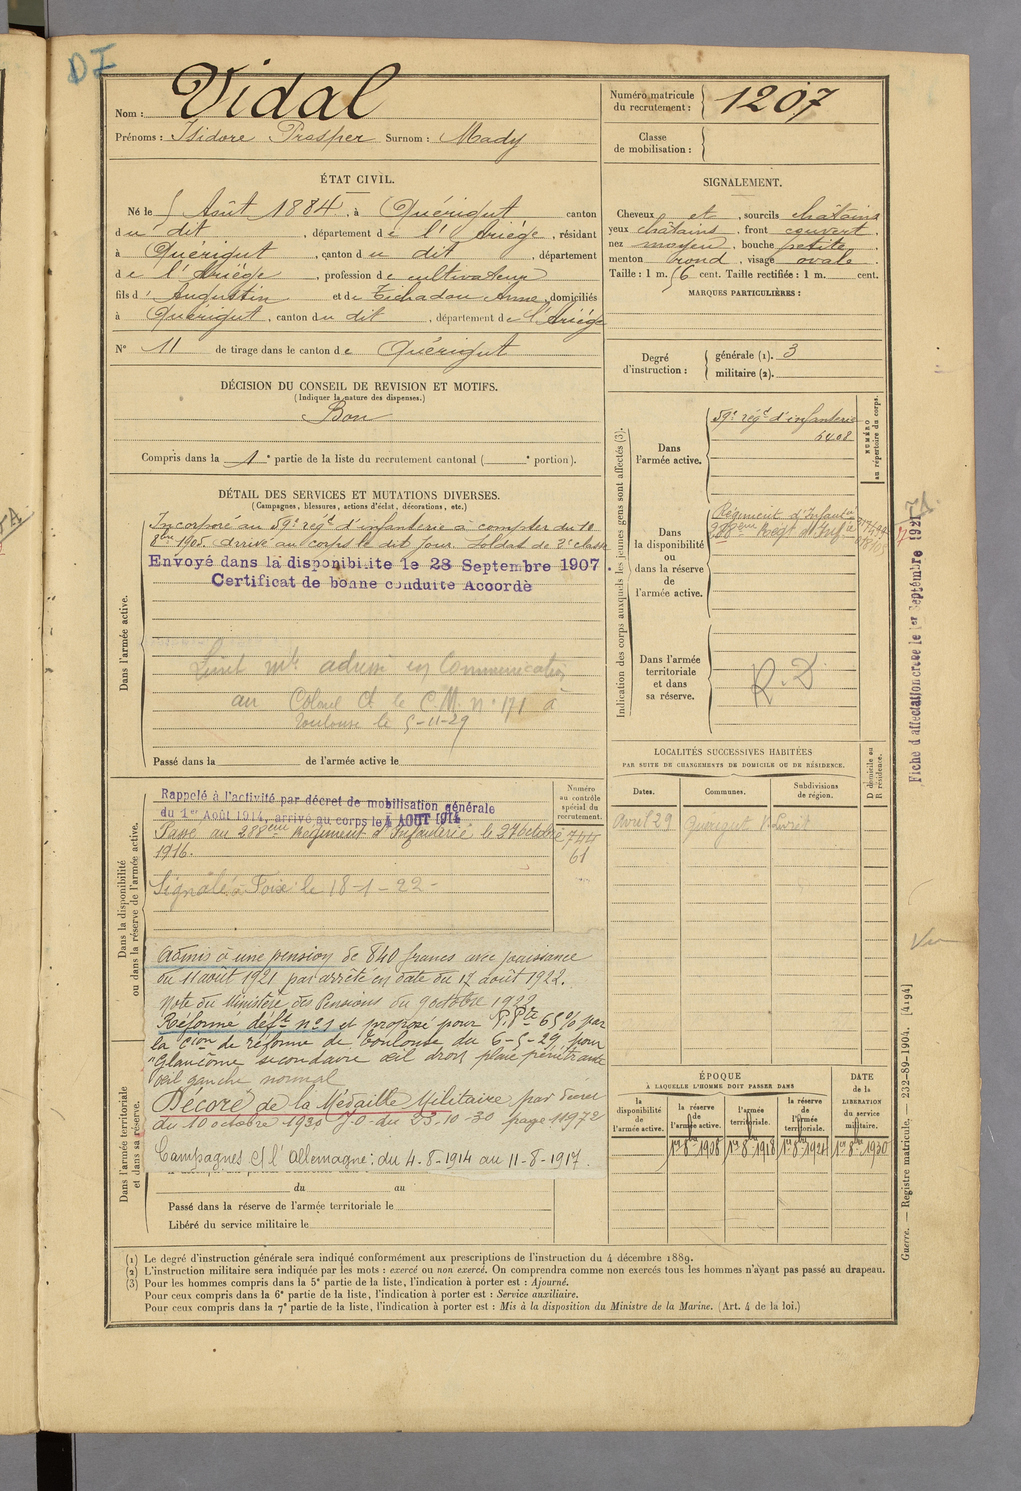 DI
Nom : Vidal
Prénoms : Isidore Prosper Surnom : Mady
ÉTAT CIVIL.
Né le 5 Août 1884, à Quérigut canton
du dit, département de l'Ariège, résidant
à Quérigut, canton du dit, département
de l'Ariège, profession de cultivateur
fils d' Augustin et de Tichadou Anne, domiciliés
à Quérigut, canton du dit, département de l'Ariège
N° 11 de tirage dans le canton de Quérigut
DÉCISION DU CONSEIL DE REVISION ET MOTIFS.
(Indiquer la nature des dispenses.)
Bon
Compris dans la 1e partie de la liste du recrutement cantonal ( e portion).
DÉTAIL DES SERVICES ET MUTATIONS DIVERSES.
(Campagnes, blessures, actions d'éclat, décorations, etc.)
Dans l'armée active.
Incorporé au 59e régt d'infanterie à compter du 10
8bre 1905. Arrivé au corps le dit jour. Soldat de 2e classe
Envoyé dans la disponibilite le 28 Septembre 1907.
Certificat de bonne conduite Accordè
Livret mle admin en Communication
au Colonel Ct le C.M. n° 171 à
Toulouse le 5-11-29
Passé dans la de l'armée active le
Dans la disponibilité
ou dans la réserve de l'armée active.
Numéro
au contrôle
spécial du
recrutement.
Rappelé à l'activité par décret de mobilisation générale
du 1er Août 1914, arrivé au corps le 4 AOUT 1914
Passé au 288ème Régiment d'Infanterie le 27 octobre
1916.
744
61
Signalé à Foix le 18-1-22-
Admis à une pension de 840 francs avec jouissance
du 11 août 1921 par arrêté en date du 17 août 1922.
Note du Ministère des Pensions du 9 octobre 1922
Réformé déft n°1 et proposé pour P.Pte 65% par
la Cion de réforme de Toulouse du 6-5-29 pour
"Glaucôme secondaire œil droit plaie pénétrante
œil gauche normal
Décoré de la Médaille Militaire par décret
du 10 octobre 1930 J.O. du 23-10-30 page 11972
Campagnes c/ l'Allemagne : du 4-8-1914 au 11-8-1917.
Dans l'armée territoriale
et dans sa réserve.
du au
Passé dans la réserve de l'armée territoriale le
Libéré du service militaire le
Numéro matricule
du recrutement : 1207
Classe
de mobilisation :
SIGNALEMENT.
Cheveux et, sourcils châtains
yeux châtains, front couvert,
nez moyen, bouche petite,
menton rond, visage ovale.
Taille : 1 m. 56 cent. Taille rectifiée : 1 m. cent.
MARQUES PARTICULIÈRES :
Degré
d'instruction :
générale (1). 3
militaire (2).
Indication des corps auxquels les jeunes gens sont affectés (3).
NUMÉRO
au répertoire du corps.
Dans
l'armée active.
59e régt d'infanterie
5408
Dans
la disponibilité
ou
dans la réserve
de
l'armée active.
Régiment d'Infantie
288ème Régt d'Infie
Dans l'armée
territoriale
et dans
sa réserve.
R.D
LOCALITÉS SUCCESSIVES HABITÉES
PAR SUITE DE CHANGEMENTS DE DOMICILE OU DE RÉSIDENCE.
Dates. Communes. Subdivisions
de région.
D domicile ou
R résidence.
Avril 29 Quérigut
ÉPOQUE
À LAQUELLE L'HOMME DOIT PASSER DANS
DATE
de la
LIBÉRATION
du service
militaire.
la
disponibilité
de
l'armée active.
la réserve
de
l'armée active.
l'armée
territoriale.
la réserve
de
l'armée
territoriale.
1er 8bre 1908 1er 8bre 1918 1er 8bre 1924 1er 8bre 1930
Fiche d'affectation créée le 1er Septembre 1921
Vu
Guerre. — Registre matricule. — 232-89-1904. [4194]
(1) Le degré d'instruction générale sera indiqué conformément aux prescriptions de l'instruction du 4 décembre 1889.
(2) L'instruction militaire sera indiquée par les mots : exercé ou non exercé. On comprendra comme non exercés tous les hommes n'ayant pas passé au drapeau.
(3) Pour les hommes compris dans la 5e partie de la liste, l'indication à porter est : Ajourné.
Pour ceux compris dans la 6e partie de la liste, l'indication à porter est : Service auxiliaire.
Pour ceux compris dans la 7e partie de la liste, l'indication à porter est : Mis à la disposition du Ministre de la Marine. (Art. 4 de la loi.)